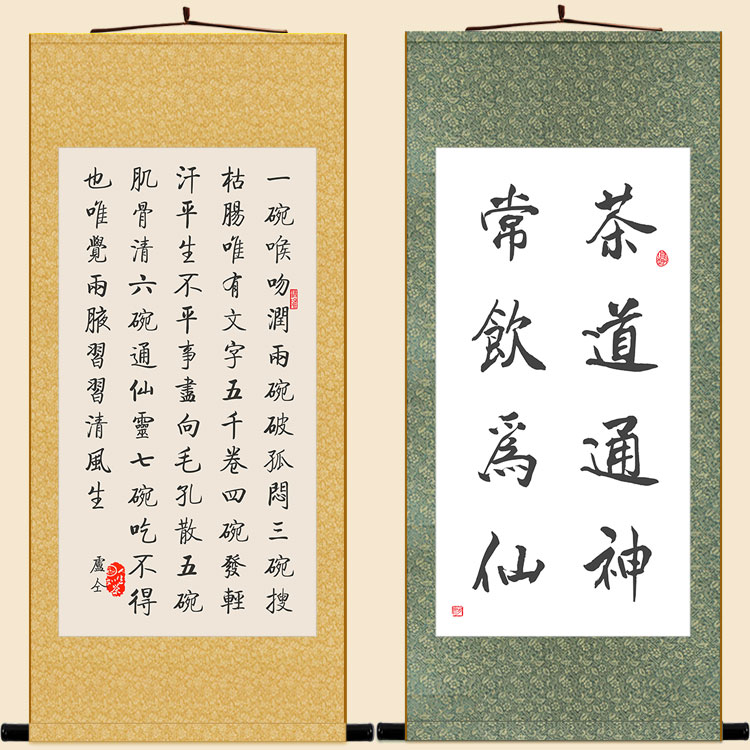 一碗喉吻潤兩碗破孤悶三碗搜
枯腸唯有文字五千卷四碗發輕
汗平生不平事盡向毛孔散五碗
肌骨清六碗通仙靈七碗吃不得
也唯覺兩腋習習清風生
盧仝
茶道通神
常飲爲仙